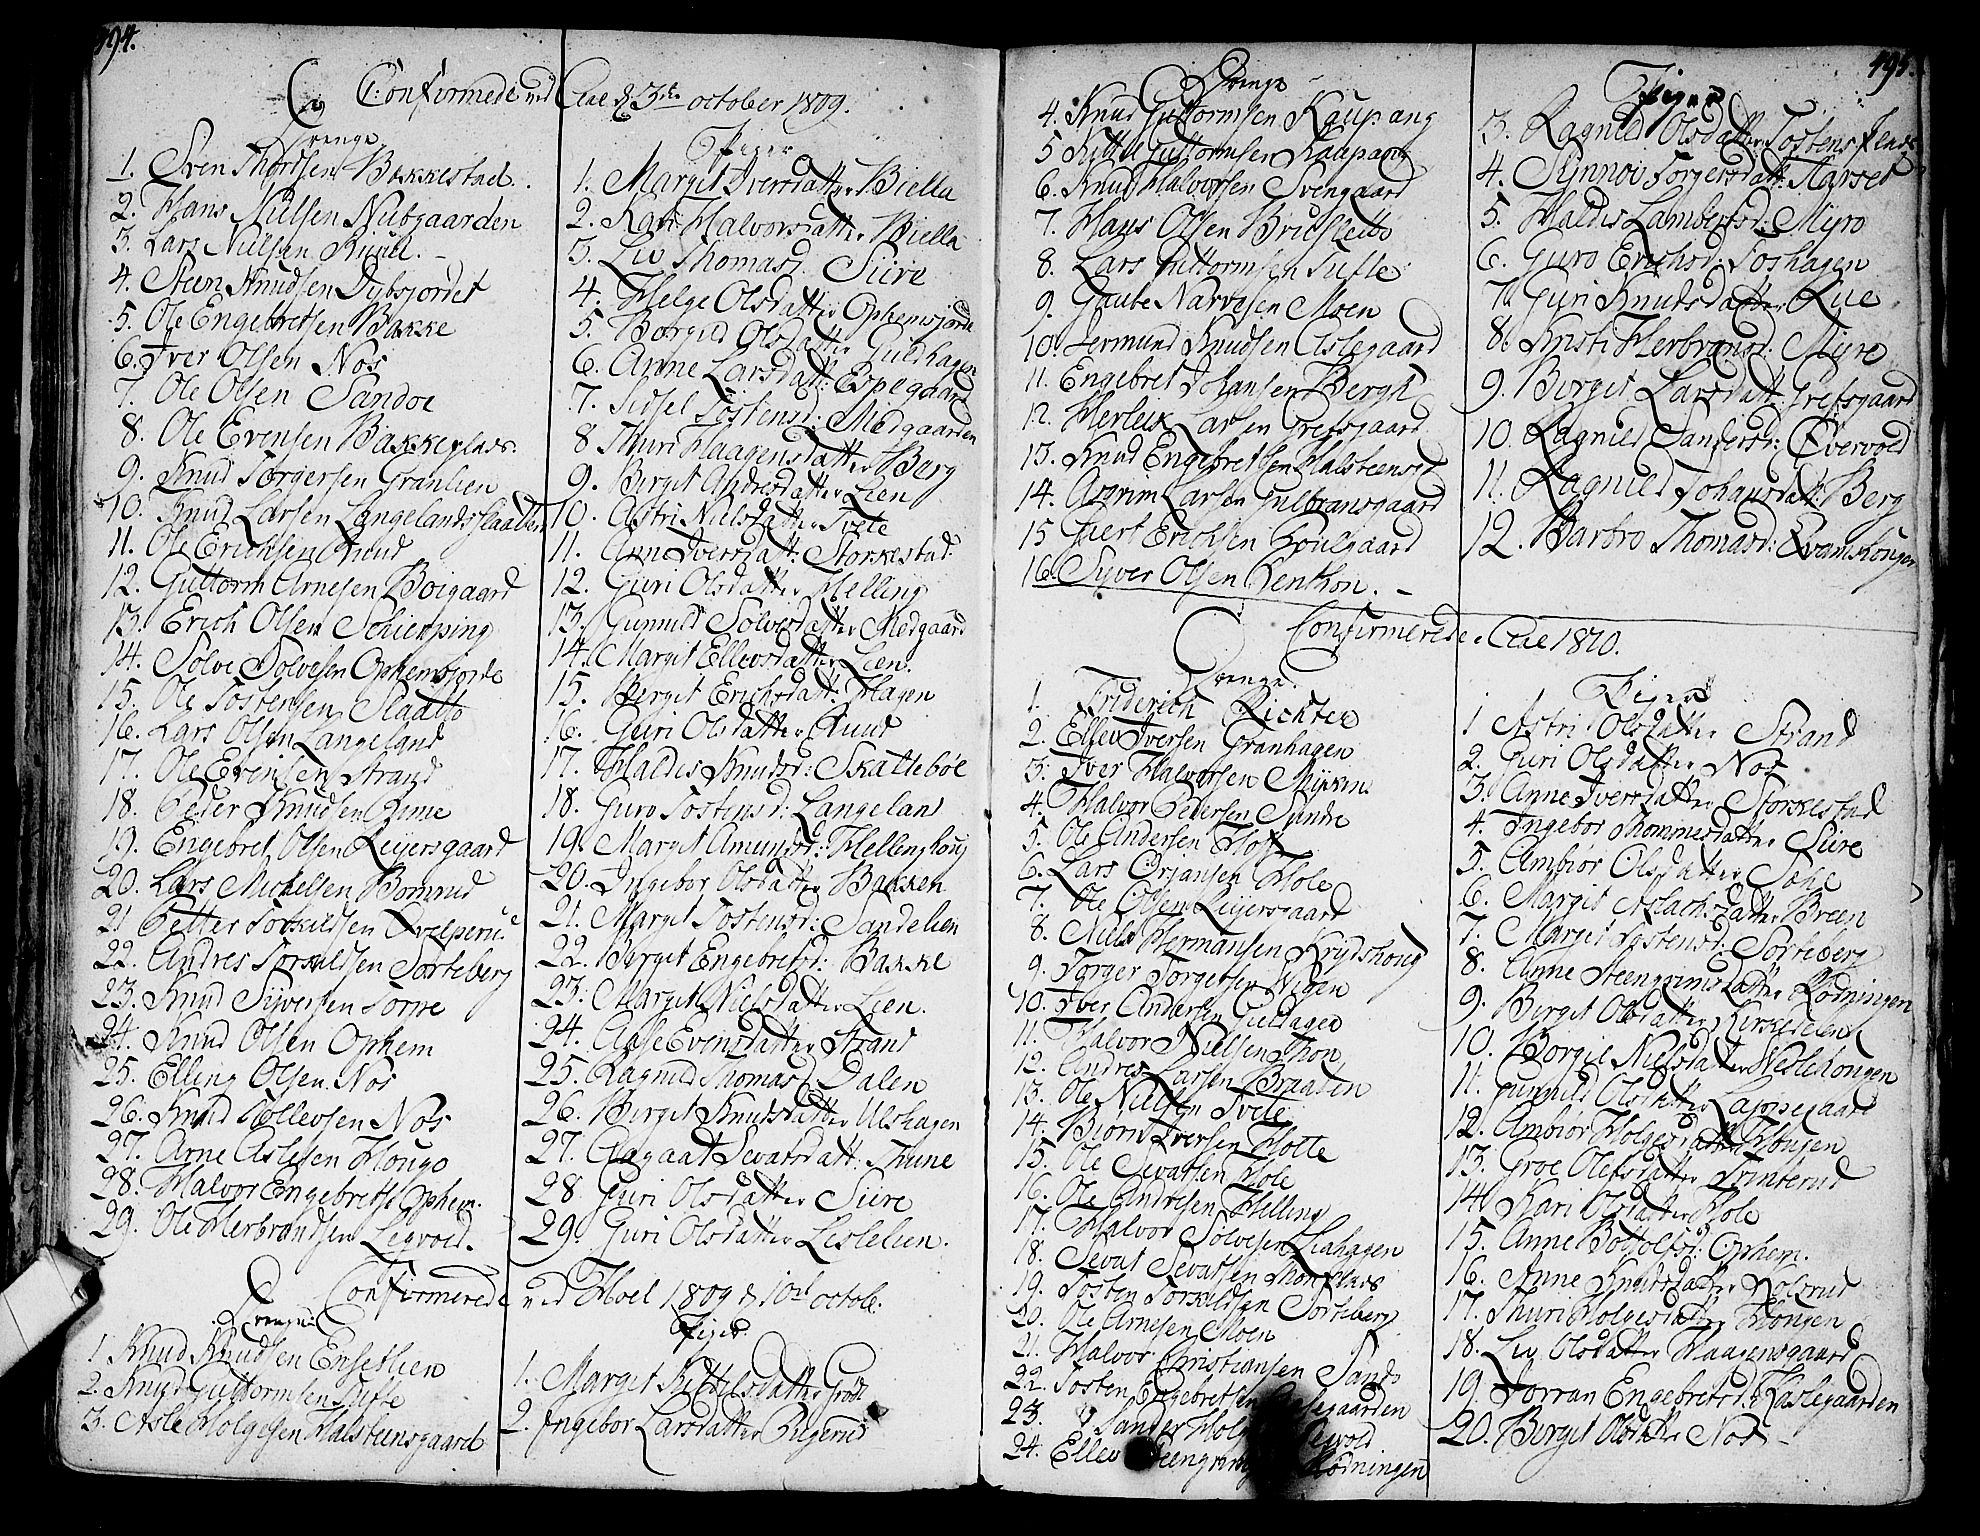 494.
Confirmede ved Aal d. 3de october 1809.
Drenge
1. Sven Thordsen Bakkestad.
2. Hans Nielsen Nubgaarden
3. Lars Nielsen Ruud.
4. Steen Knudsen Dybsjordet
5. Ole Engebretsen Bakke
6. Iver Olsen Nos
7. Ole Olsen Sandoe
8. Ole Evensen Bakkeplads:
9. Knud Torgersen Granlien
10. Knud Larsen Langelands
11. Ole Erichsen Ruud
12. Guttorm Arnesen Boigaard
13. Erich Olsen Schierping
14. Solve Solvesen Ophemsjorde
15. Ole Tostensen Slaatto
16. Lars Olsen Langeland
17. Ole Evensen Strand
18. Peder Knudsen Rime
19. Engebret Olsen Reijersgaard
20. Lars Michelsen Bomrud
21 Petter Torkildsen
22. Andres Torkildsen Sorteberg
23. Knud Syversen Torpe
24. Knud Olsen Ophem
25. Elling Olsen Nos
26. Knud Tollevsen Nos
27. Arne Aslesen Hougo
28. Halvor Engebretss. Ophem.
29. Ole Herbrandsen Legvold.
Piger
1. Margit Iversdatter Biella
2. Kari Halvorsdatter Biella
3. Liv Thomasd. Siire
4. Helge Olsdatter Ophemsjorde
5. Borgild Olsdatter Guldhagen
6. Anne Larsdatt: Espegaard
7. Sidsel Tostensd: Medgaarden
8 Thuri Haagensdatter Berg
9. Birgit Andresdatter Lien
10. Astri Nielsdatter Tvete
11. Anne Iversdatt: Storkestad
12. Guri Olsdatter Helling
13. Gunnild Solvesdatter Medgaard
14. Margit Ellevsdatter Lien.
15. Bergit Erichsdatt: Hagen
16. Guri Olsdatter Ruud
17. Haldis Knudsd: Skattebøe
18. Guro Tostensd: Langeland
19. Margit Amundsd: Hellinghoug
20. Ingebor Olsdatter Bakken
21. Margit Tostensd: Sandelien
22. Birgit Engebretsd: Bakke
23. Margit Nielsdatter Lien.
24. Aase Evensdatter Strand
25. Ragnild Thomasd. Dalen
26. Birgit Knudsdatter Ulshagen
27. Aagaat Sevatsdatt: Thune
28 Guri Olsdatter Siire
29. Guri Olsdatter Leslelien.
Confirmerede ved Hoel 1809 d. 10de octob.
Drenge
1 Knud Knudsen Ensetlien
2. Knud Guttormsen Tufte
3. Asle Holgesen Halsteensgaard
Piger
1. Margit Kittelsdatter Grøtt
2. Ingebor Larsdatter
495.
Drenge
4. Knud Guttormsen Kaupang
5 Kittil Guttormsen Kaupang
6. Knud Halvorsen Svengaard
7. Hans Olsen Briesletto
8. Lars Guttormsen Tufte
9. Gaube Narvesen Moen
10. Jermund Knudsen Aslegaard
11. Engebret Johansen Bergh
12. Herleik Larsen Grefsgaard
13. Knud Engebretsen Halsteenset
14. Asgrim Larsen Gulbransgaard
15 Giert Erichsen Goulgaard
16. Syver Olsen Renthon.
Piger
3. Ragnild Olsdatter Tostensplads
4. Synnov Torgersdatt: Harset
5. Haldis Lambertsd: Myro
6. Guro Erichsd: Toshagen
7. Guri Knudsdatter Lue
8. Kristi Herbransd: Myre
9. Birgit Larsdatt: Grefsgaard
10. Ragnild Sandersd: Qvervold
11. Ragnild Johansdatt: Berg
12. Barbro Thomasd: Qvamshougen
Confirmerede Aal 1810.
Drenge.
1. Friderich Richter
2. Ellev Iversen Granhagen
3. Iver Halvorsen Myking
4. Halvor Pedersen Sundre
5. Ole Andersen Hoff
6. Lars Orjansen Hole
7. Ole Olsen Reijersgaard
8. Niels Hermansen Krydshoug
9. Torger Torgersen Vigen
10. Iver Andersen Guldagen
11. Halvor Nielsen Thon
12. Andres Larsen Braaten
13. Ole Nielsen Tvete
14. Biorn Iversen Hotte
15. Ole Sevatsen Hole
16. Ole Andresen Helling
17. Halvor Solvesen Liahagen
18. Sevat Sevatsen Thonplads
19. Tosten Torkildsen Sorteberg
20. Ole Arnesen Moen
21. Halvor Christiansen Sando
22. Tosten Engebretsen
23. Sander
24. Ellev Rodningen
Piger
1 Astri Olsdatter Strand
2. Guri Olsdatter Nos
3. Anne Iversdatter Storkestad
4. Ingebor Thommesdatter Siire
5. Ambiør Olsdatter
6. Margit Aslachsdatter Breen
7. Margit Tostensd: Sorteberg
8. Anne Steengrimsdatter Rodningen
9. Birgit Olsdatter Kirkedelen
10. Borgil Nielsdatter Vislehougen
11. Gunnild Olsdatter Lappegaard
12. Ambiør Holgesdatter Hougen
13. Groe Olefsdatter Trinterud
14 Kari Olsdatter Hole
15. Anne Botolfsd: Ophem.
16. Anne Knudsdatter Nolsrud
17. Thuri Holgesdatter Hougen
18. Liv Olsdatter Haagensgaard
19. Jorran Engebretsd: Haslegaarden
20. Birgit Olsdatter Nos